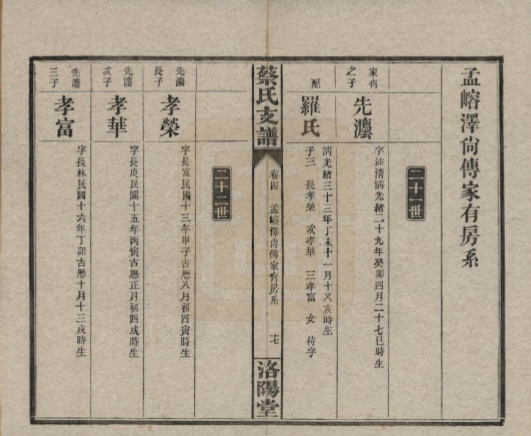 孟嵱澤尙傳家有房系
二十一世
家有之子
先灋
字 清清光緒二十九年癸卯四月二十七巳時生
配
羅氏
清光緒三十三年丁未十一月十八亥時生
子三 長孝榮 次孝華 三孝富 女 待字
蔡氏支譜
卷四 孟嵱澤尙傳家有房系
洛陽堂
二十二世
先灋長子
孝榮
字長富民國十三年甲子古曆八月初四寅時生
先灋次子
孝華
字長庚民國十五年丙寅古曆正月初四戌時生
先灋三子
孝富
字長林民國十六年丁卯古曆十月十三戌時生